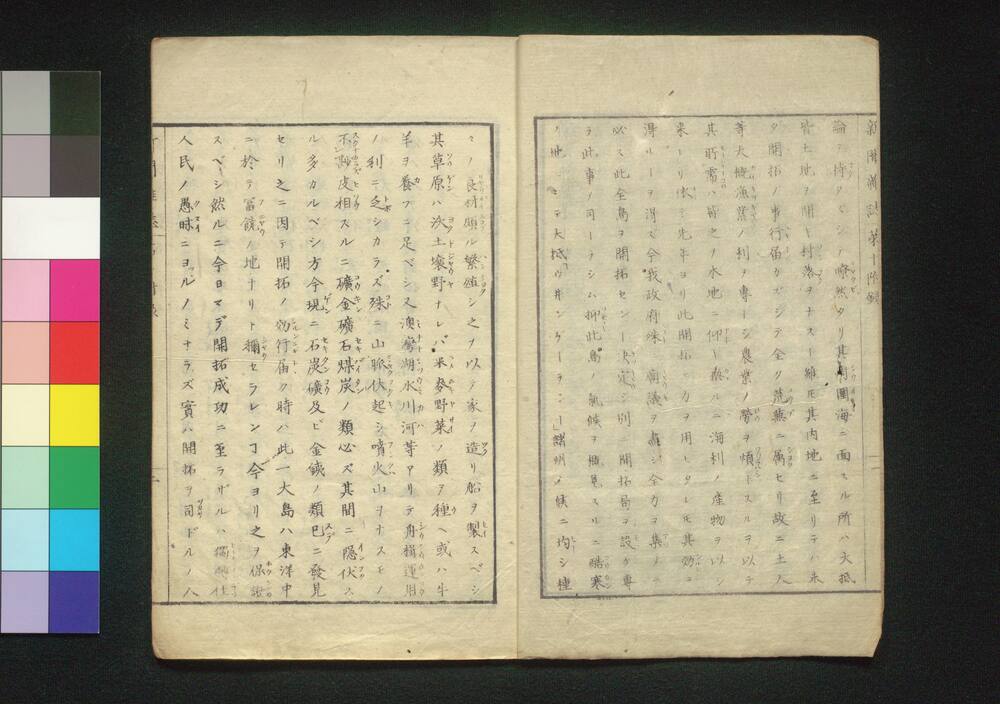 新聞雜誌第十附録
論ヲ待タズシテ瞭然タリ其周圍海ニ面スル所ハ大抵
皆土地ヲ開キ村落ヲナスト雖モ其内地ニ至リテハ未
ダ開拓ノ事行届カズシテ全ク荒蕪ニ属セリ故ニ土人
等大概漁業ノ利ヲ專ーシ農業ノ勞ヲ憤トスルヲ以テ
其所畜皆之ノ水地ニ仰キ
海利ノ産物ヲ以シ
来レリ依ミ先年ヨリ此開拓ニ力ヲ用ヒタレモ其効ヲ
得ルーヲ得ズ今我政府殊ニ廟議ヲ盡シ全力ヲ集メテ
必ス此全島ヲ開拓センー决定シ別ニ開拓局ヲ設ケ專
ラ此事ノ司ーラシム抑此島ノ氣候ヲ概見スルニ酷寒
ノ地ニシテ大抵
諸州ノ候ニ均シ種
々ノ良材頗ル繁殖シ之ヲ以テ家ヲ造リ船ヲ製スベシ
其草原ハ沃土壌野ナレバ米麥野菜ノ類ヲ種ヘ或ハ牛
羊ヲ養フニ足ベシ又澳灣湖水川河等アリテ舟楫運用
ノ利ニ乏シカラズ殊ニ山脈伏起シ噴火山ヲナスモノ
不尠皮相スルニ礦金礦石煤炭ノ類必ズ其間ニ隱伏ス
ル多カルベシ方今現ニ石炭礦及ビ金鐵ノ類已ニ發見
セリ之ニ因テ開拓ノ効行届ク時ハ此一大島ハ東洋中
ニ於テ冨饒ノ地ナリト稱セラレンヿ今ヨリ之ヲ保證
スベーシ然ルニ今日マデ開拓成功ニ至ラザルハ獨
人民ノ愚昧ニヨルノミナラズ實ハ開拓ヲ司ドルノ人